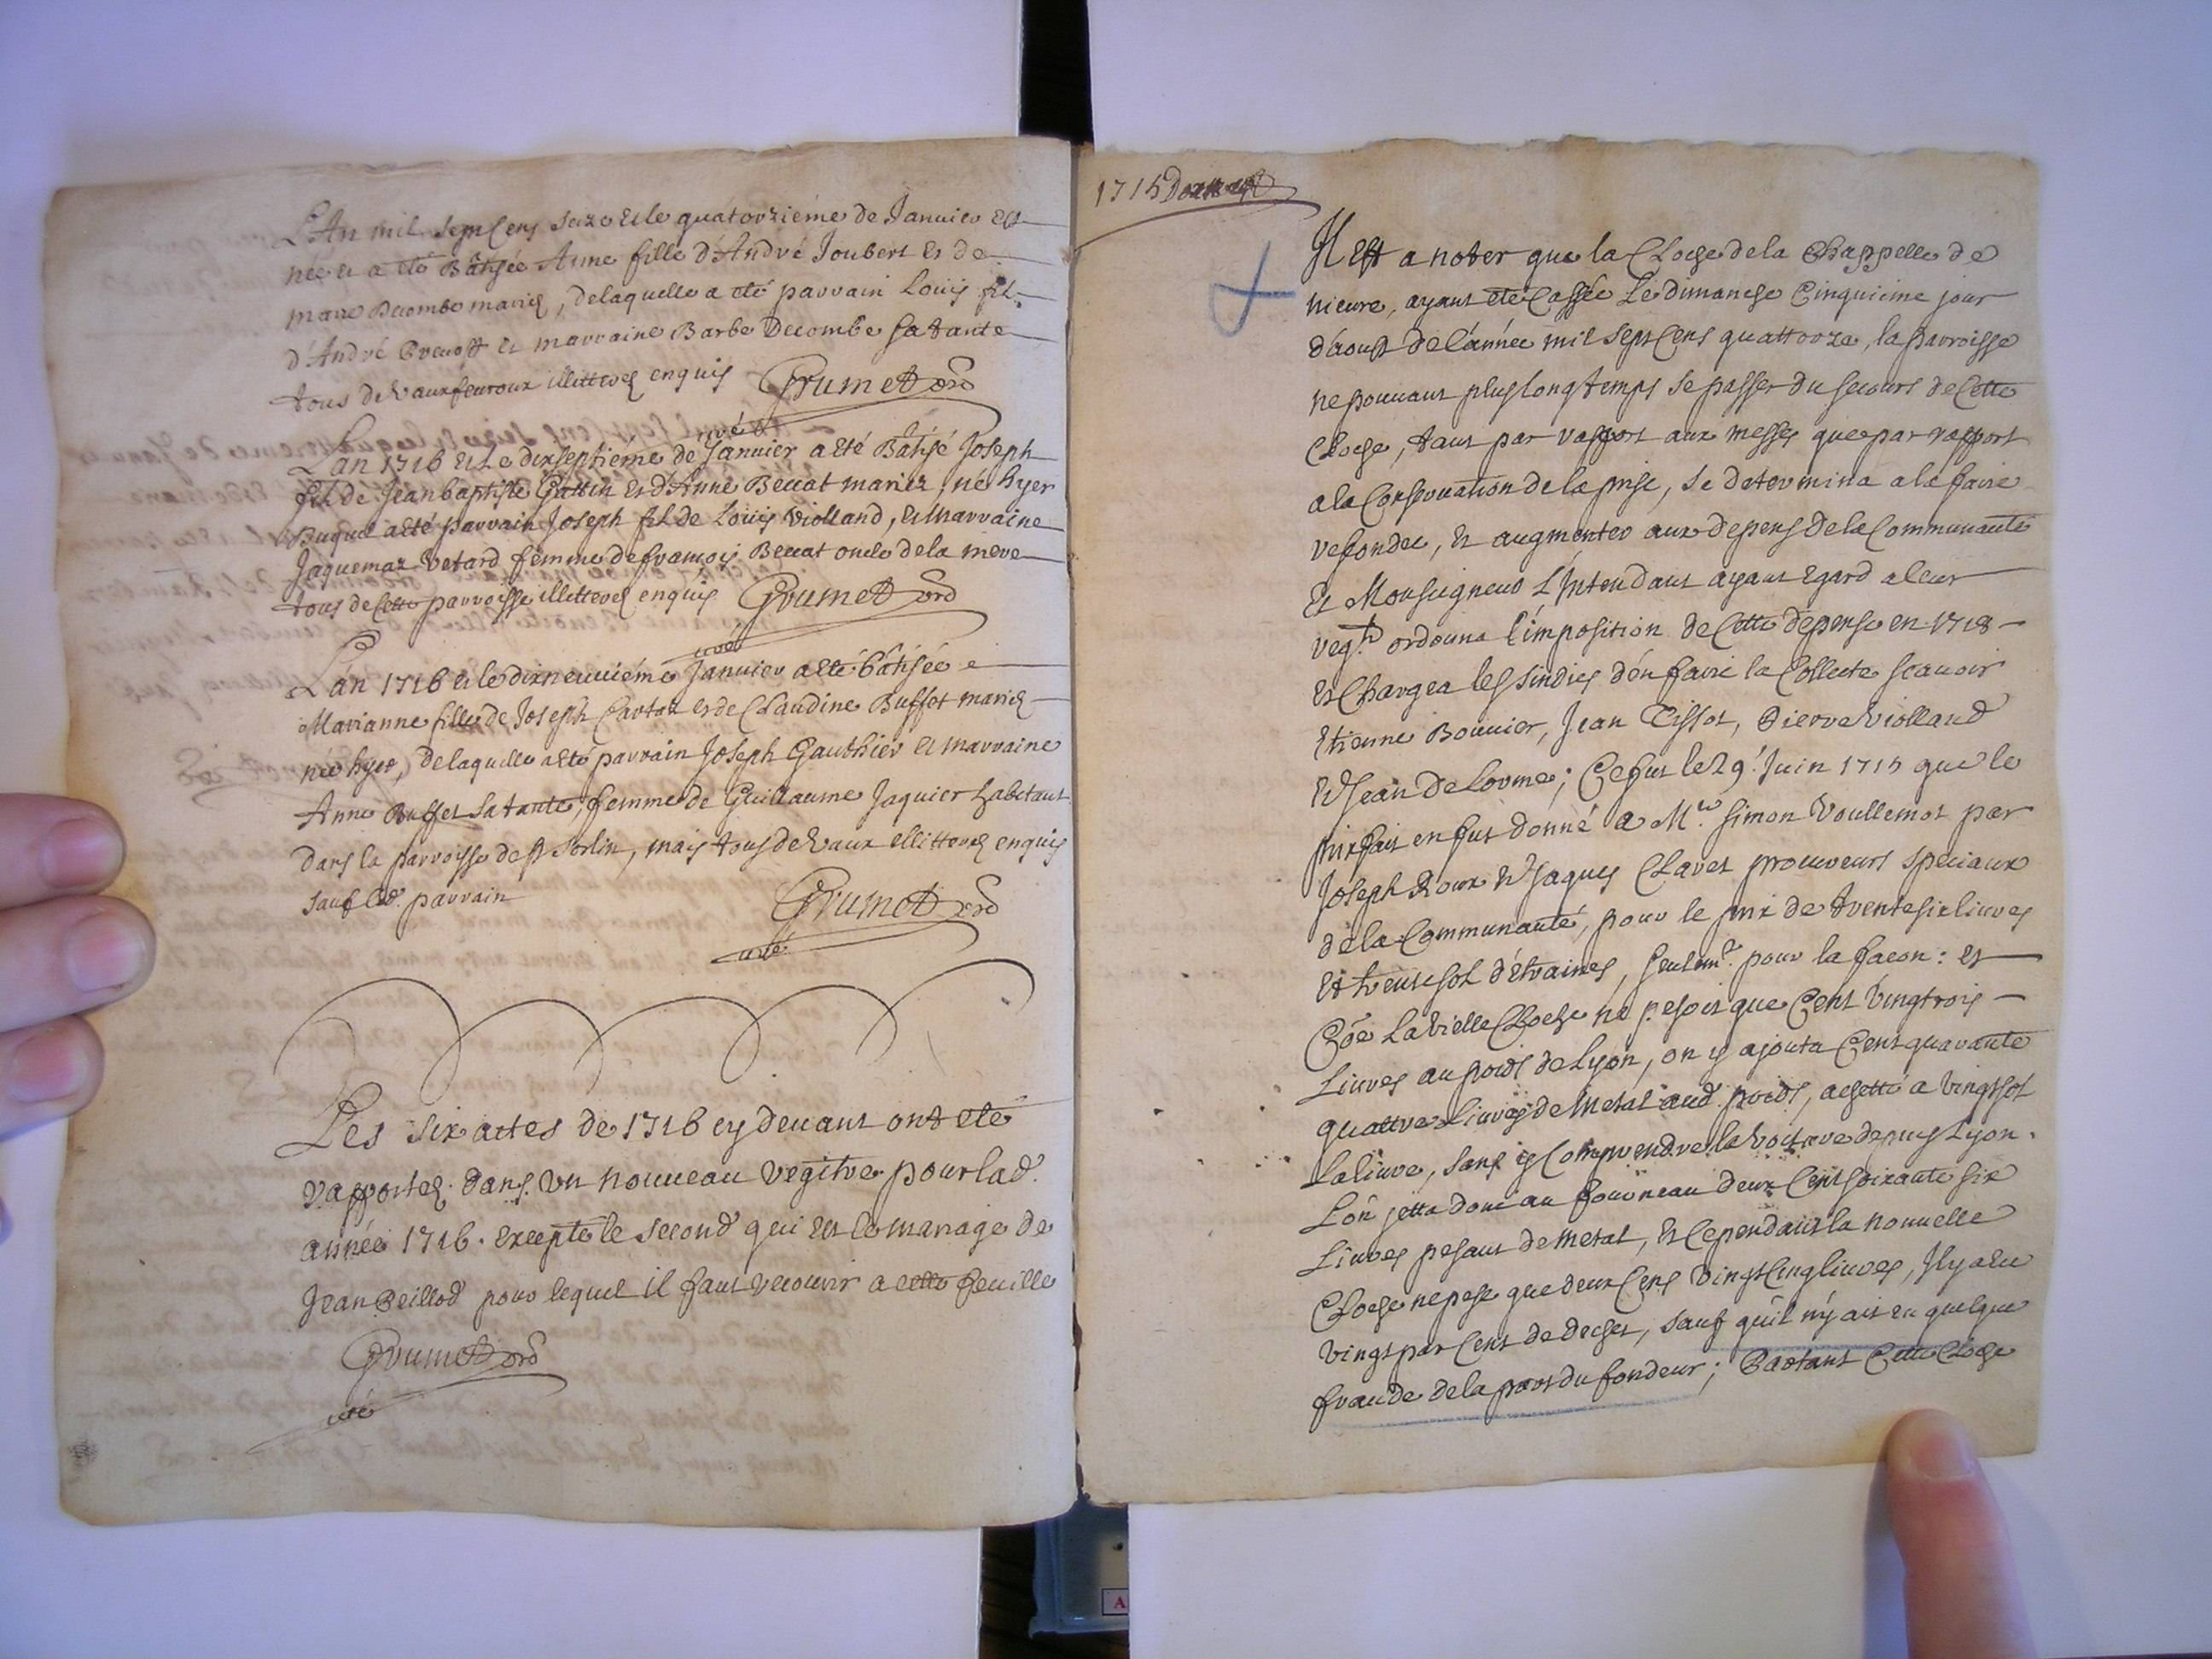 L'An mil sept cens seize et le quatorzieme de Janvier est
née et a eté Bâtisée Anne fille d'André Joubert et de
marie Decombe mariez, de laquelle a eté parrain Louis fil
d'André Brevost et marraine Barbe Decombe sa tante
tous de vauxfevroux illitterez enquis Grumet
curé
L'an 1716 et le dixseptiéme de Janvier a eté Bâtisé Joseph
fil de Jean baptiste Gattin et d'Anne Beccat mariez, né hyer
Duquel a eté parrain Joseph fil de Louis Violland, et marraine
Jaquemaz Vetard femme de francois Beccat oncle de la mere
tous de cette parroisse illitterez enquis Grumet
curé
L'an 1716 et le dixneuviéme Janvier a eté bâtisée
Marianne fille de Joseph Cartaz et de Claudine Buffet mariez
née hyer, de laquelle a eté parrain Joseph Gauthier et marraine
Anne Buffet sa tante, femme de Guillaume Jaquier habitant
dans la parroisse de St Sorlin, mais tous de Vaux illitterez enquis
sauf led. parrain Grumet
curé
Les six actes de 1716 cy devant ont eté
rapportez dans un nouveau regitre pour lad.
année 1716. excepté le second qui est le mariage de
Jean Peillod pour lequel il faut recourir a cette feuille
Grumet
curé
1715
Il est a noter que la Cloche de la Chappelle de
nieure, ayant eté Cassée Le dimanche Cinquiéme jour
d'aoust de l'année mil sept Cens quattorze, la parroisse
ne pouvant plus longtemps se passer du secours de Cette
Cloche, tant par rapport aux messes que par rapport
a la Conservation de la prise, se determina a la faire
refondre, et augmenter aux depens de la Communauté
Et Monseigneur L'Intendant ayant Egard a leur
reqte ordonna l'imposition de Cette dépense en 1715
Et Chargea les sindics d'en faire la Collecte scavoir
Etienne Bouvier, Jean Tissot, Pierre Violland
Et Jean Delorme; Ce fut le 29e Juin 1715 que le
prixfait en fut donné a Mre Simon Voullemot par
Joseph Roux et Jaques Clavet procureurs speciaux
de la Communauté, pour le prix de trente six livres
Et trente sol d'étraines, seulemt. pour la facon: et
Cõe La vielle Cloche ne pesoit que Cent vingtrois
Livres au poids de Lyon, on y ajouta Cent quarante
quattre livres de metal aud. poids, achetté a vingt sol
La livre, sans y Comprendre la voiture depuis Lyon.
L'on jetta donc au fourneau deux Cent soixante six
Livres pesant de metal, et Cependant la nouvelle
Cloche ne pese que deux Cens vingt Cinq livres, Il y a eu
vingt par Cent de dechet, sauf qu'il n'y ait eu quelque
fraude de la part du fondeur; Partant Cette Cloche